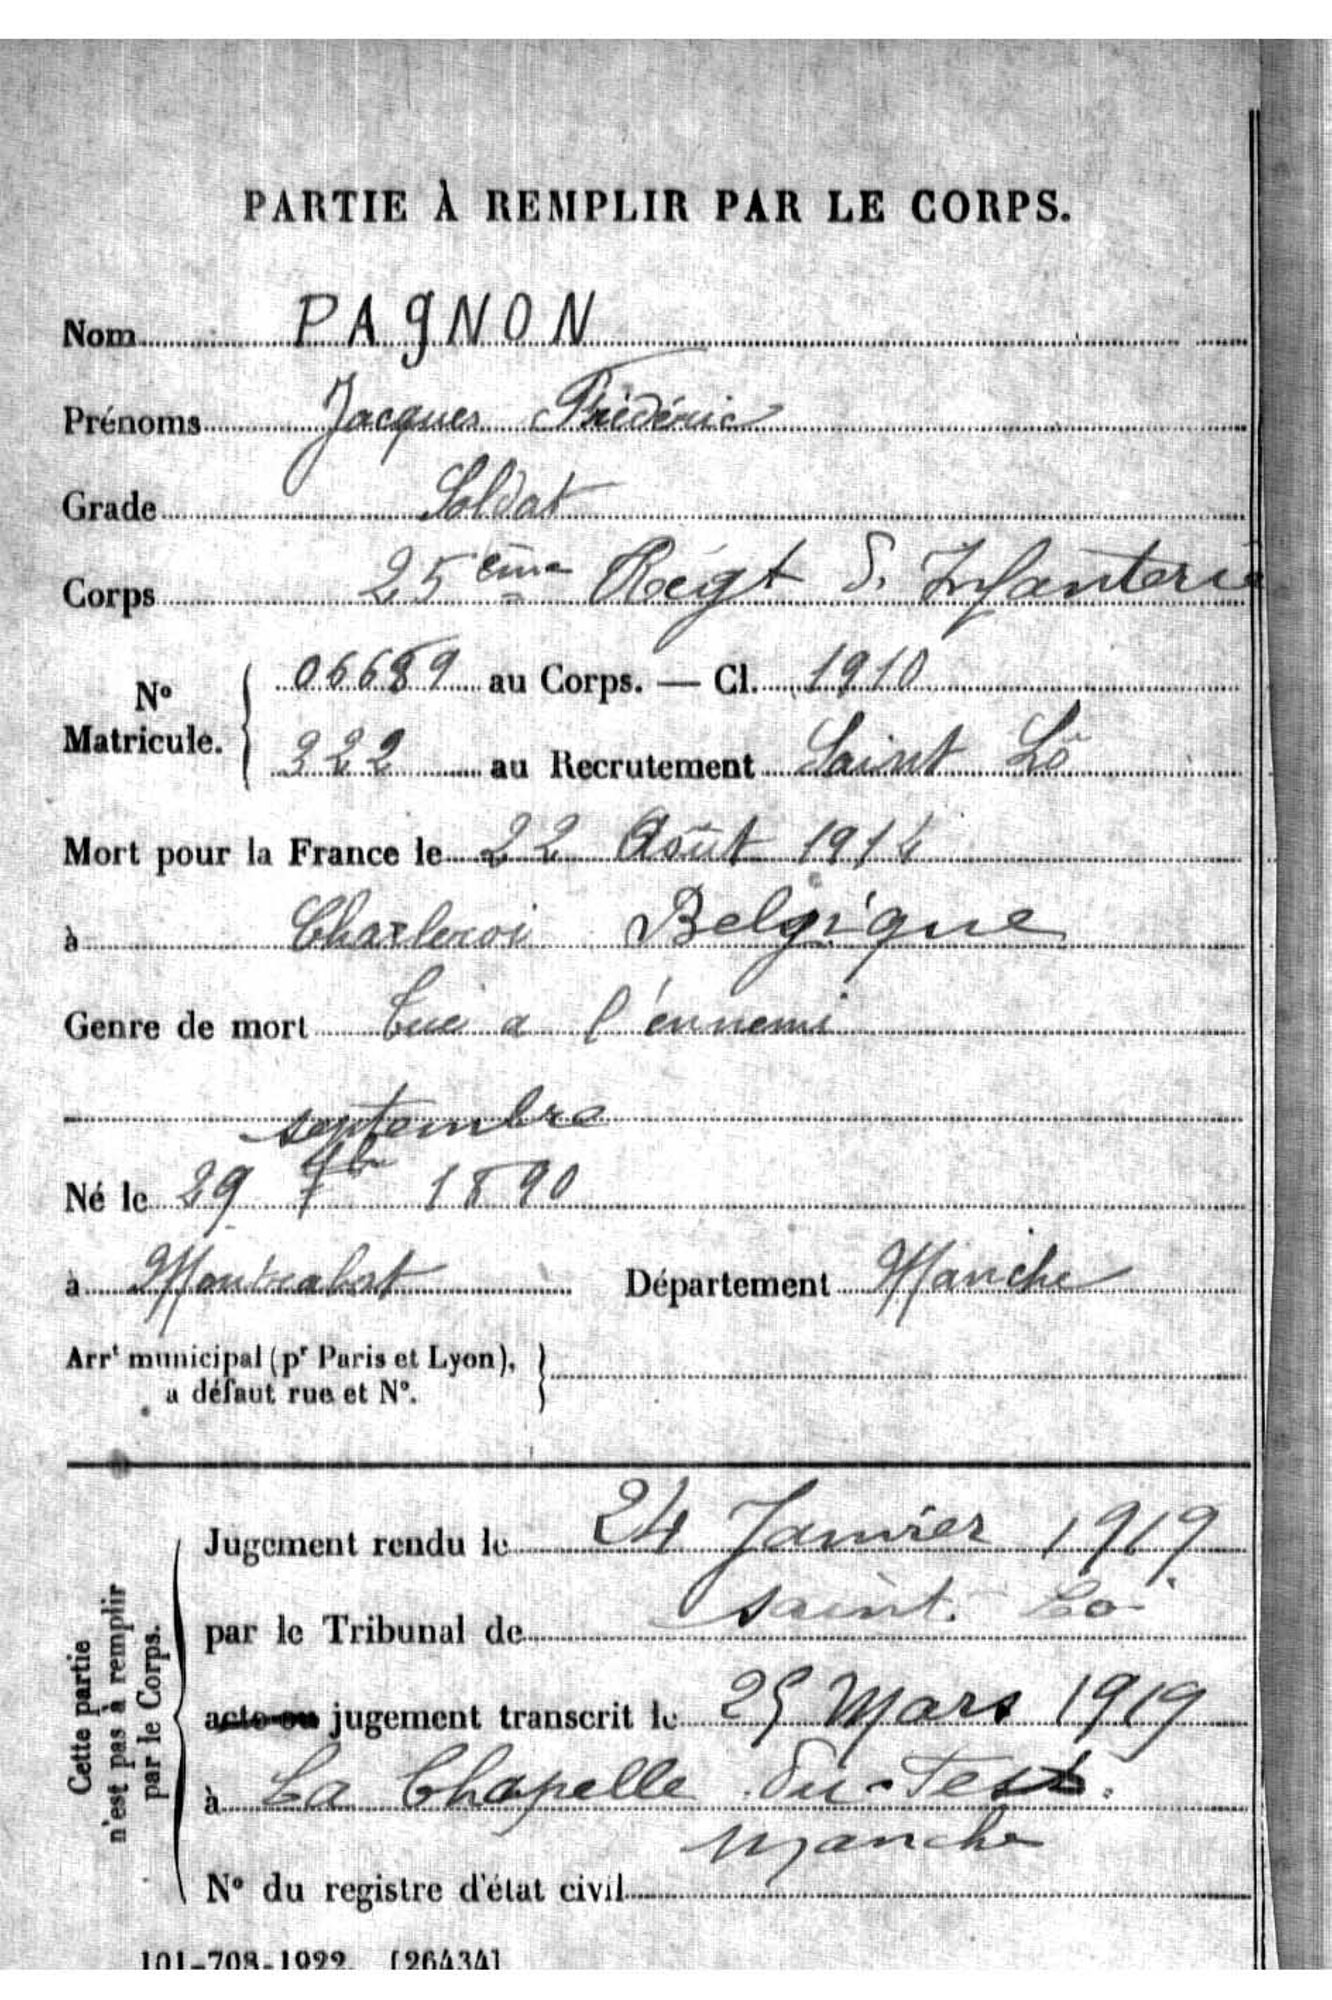 PARTIE À REMPLIR PAR LE CORPS.
Nom PAgNON
Prénoms Jacques Frédéric
Grade Soldat
Corps 25 ème Régt d'Infanterie
N° Matricule. { 06689 au Corps. — Cl. 1910
322 au Recrutement Saint Lô
Mort pour la France le 22 Août 1914
à Charleroi Belgique
Genre de mort Tué a l'ennemi
septembre
Né le 29 7bre 1890
à Montrabot Département Manche
Arrt municipal (pr Paris et Lyon), }
a défaut rue et N°.
Cette partie
n'est pas à remplir
par le Corps.
Jugement rendu le 24 Janvier 1919
par le Tribunal de Saint-Lô
acte ou jugement transcrit le 25 Mars 1919
à La Chapelle du-Fest.
Manche
N° du registre d'état civil
101-708-1922. [26434]